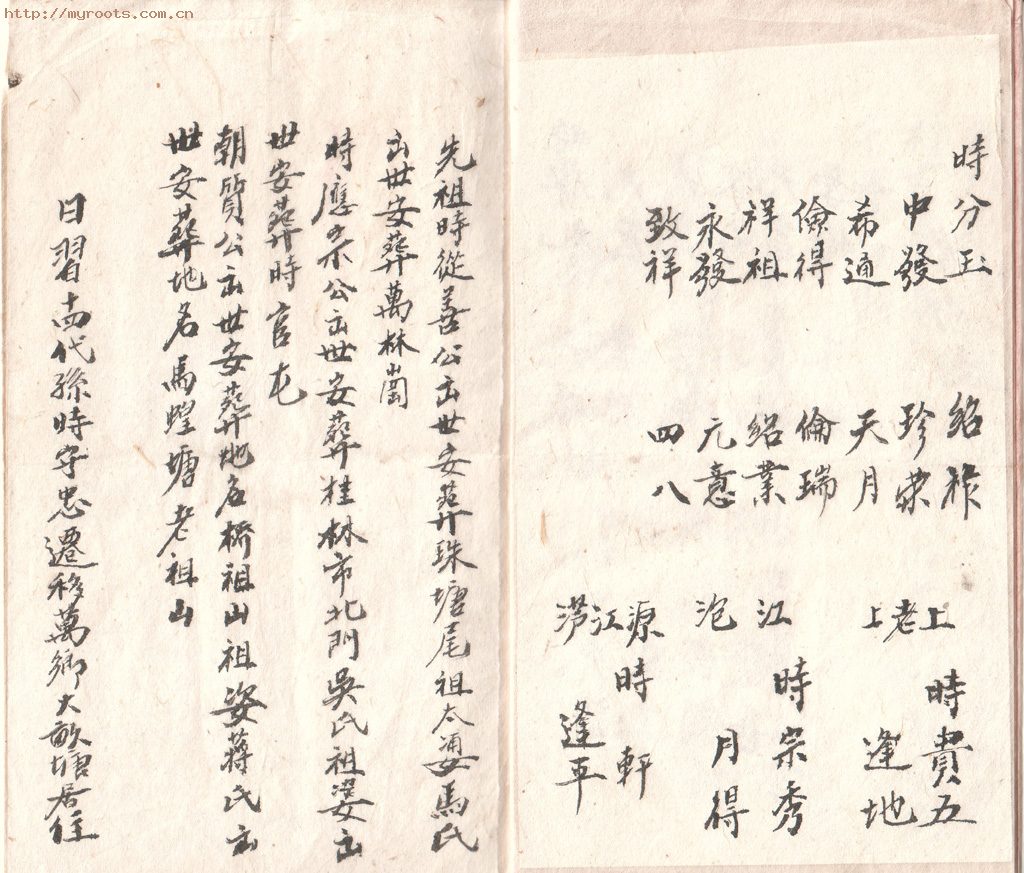 http://myroots.com.cn
時分玉
中發
希通
儉得
祥祖
永發
致祥
紹祚
珍荣
天月
倫瑞
紹業
元意
四八
上老上
時貴五
逢地
江
泡
時宗秀
月得
源江
時軒
逢平
先祖時從善公出世安葬珠塘尾祖太婆馬氏
出世安葬萬林崗
時應公出世安葬桂林市北門吳氏祖婆出
世安葬時官屯
朝質公出世安葬地名橋祖山祖婆蔣氏出
世安葬地名馬蝗塘老祖山
日習十四代孫時守忠遷移萬鄉大畝塘居住